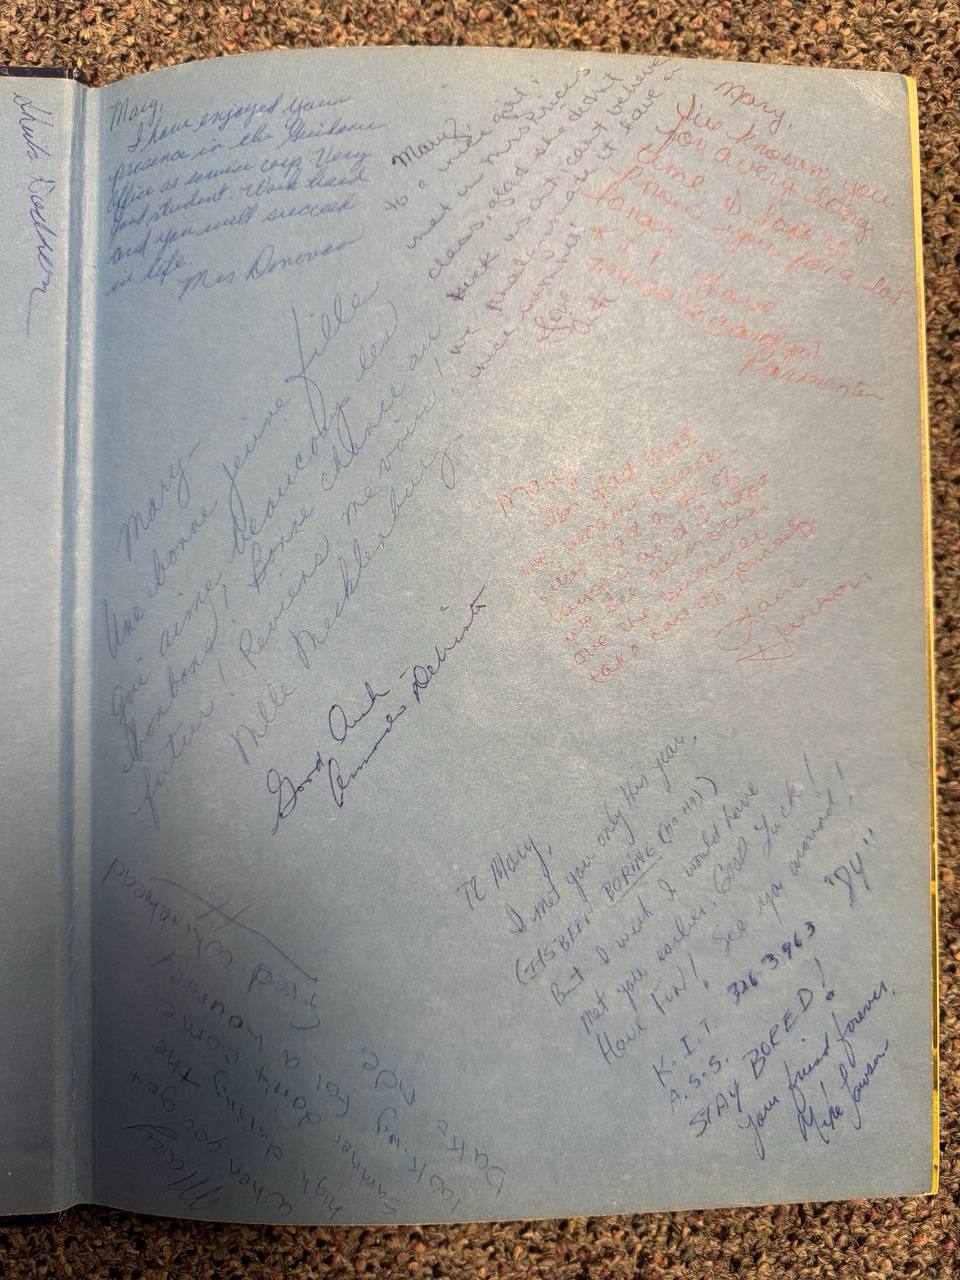 Mary,
I have enjoyed your
presence in the Guidance
Office as service corp. Very
good student. Work hard
and you will succeed
in life
Mrs Donovan
Mary,
to a nice girl!
met in Mrs Price's
class, glad she didn't
kick us out, can't believe
we finally made it
Love
Mary,
I've known you
for a very long
time & I hope to
know you for a lot
longer
Love
Parmenter
Mary-
Une bonne jeune fille
qui aime beaucoup les
bonbons! Bonne chance au
futur! Reviens me voir!
Mlle Mecklenburg
Mary
I'm glad that
we became friends
we had a lot of
laughs and I hope
we see each other
over the summer
take care of yourself
Good Luck -
To Mary,
I met you only this year,
(ITS BEEN BORING (HA HA))
But I wish I would have
met you earlier. Good Luck!
Have Fun! See you around!
K.I.T. 326 3963 "By"
A.S.S.
STAY BORED!
Your friend forever,
Mike Lawson
Mary
When you get
high during the
summer don't come
looking for a
ride.
Whitehead